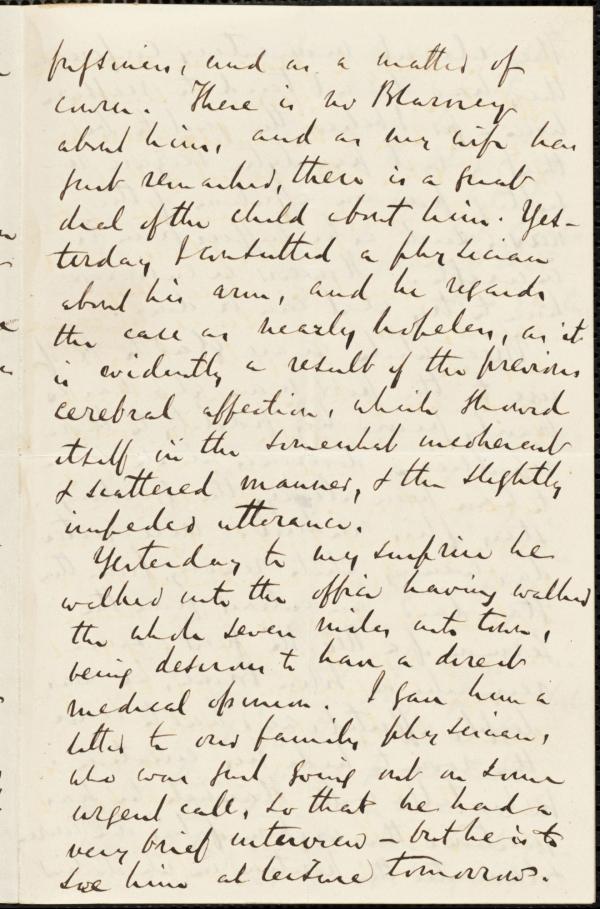 fussiness, and as a matter of
course. There is no Blarney
about him, and as my wife has
just remarked, there is a great
deal of the child about him. Yes-
terday I consulted a physician
about his arm, and he regards
the case as nearly hopeless, as it
is evidently a result of the previous
cerebral affection, which showed
itself in the somewhat incoherent
& scattered manner, & the slightly
impeded utterance.
Yesterday to my surprise he
walked into the office having walked
the whole seven miles into town,
being desirous to have a direct
medical opinion. I gave him a
letter to our family physician,
who was just going out on some
urgent call, so that he had a
very brief interview - but he is to
see him at leisure tomorrow.